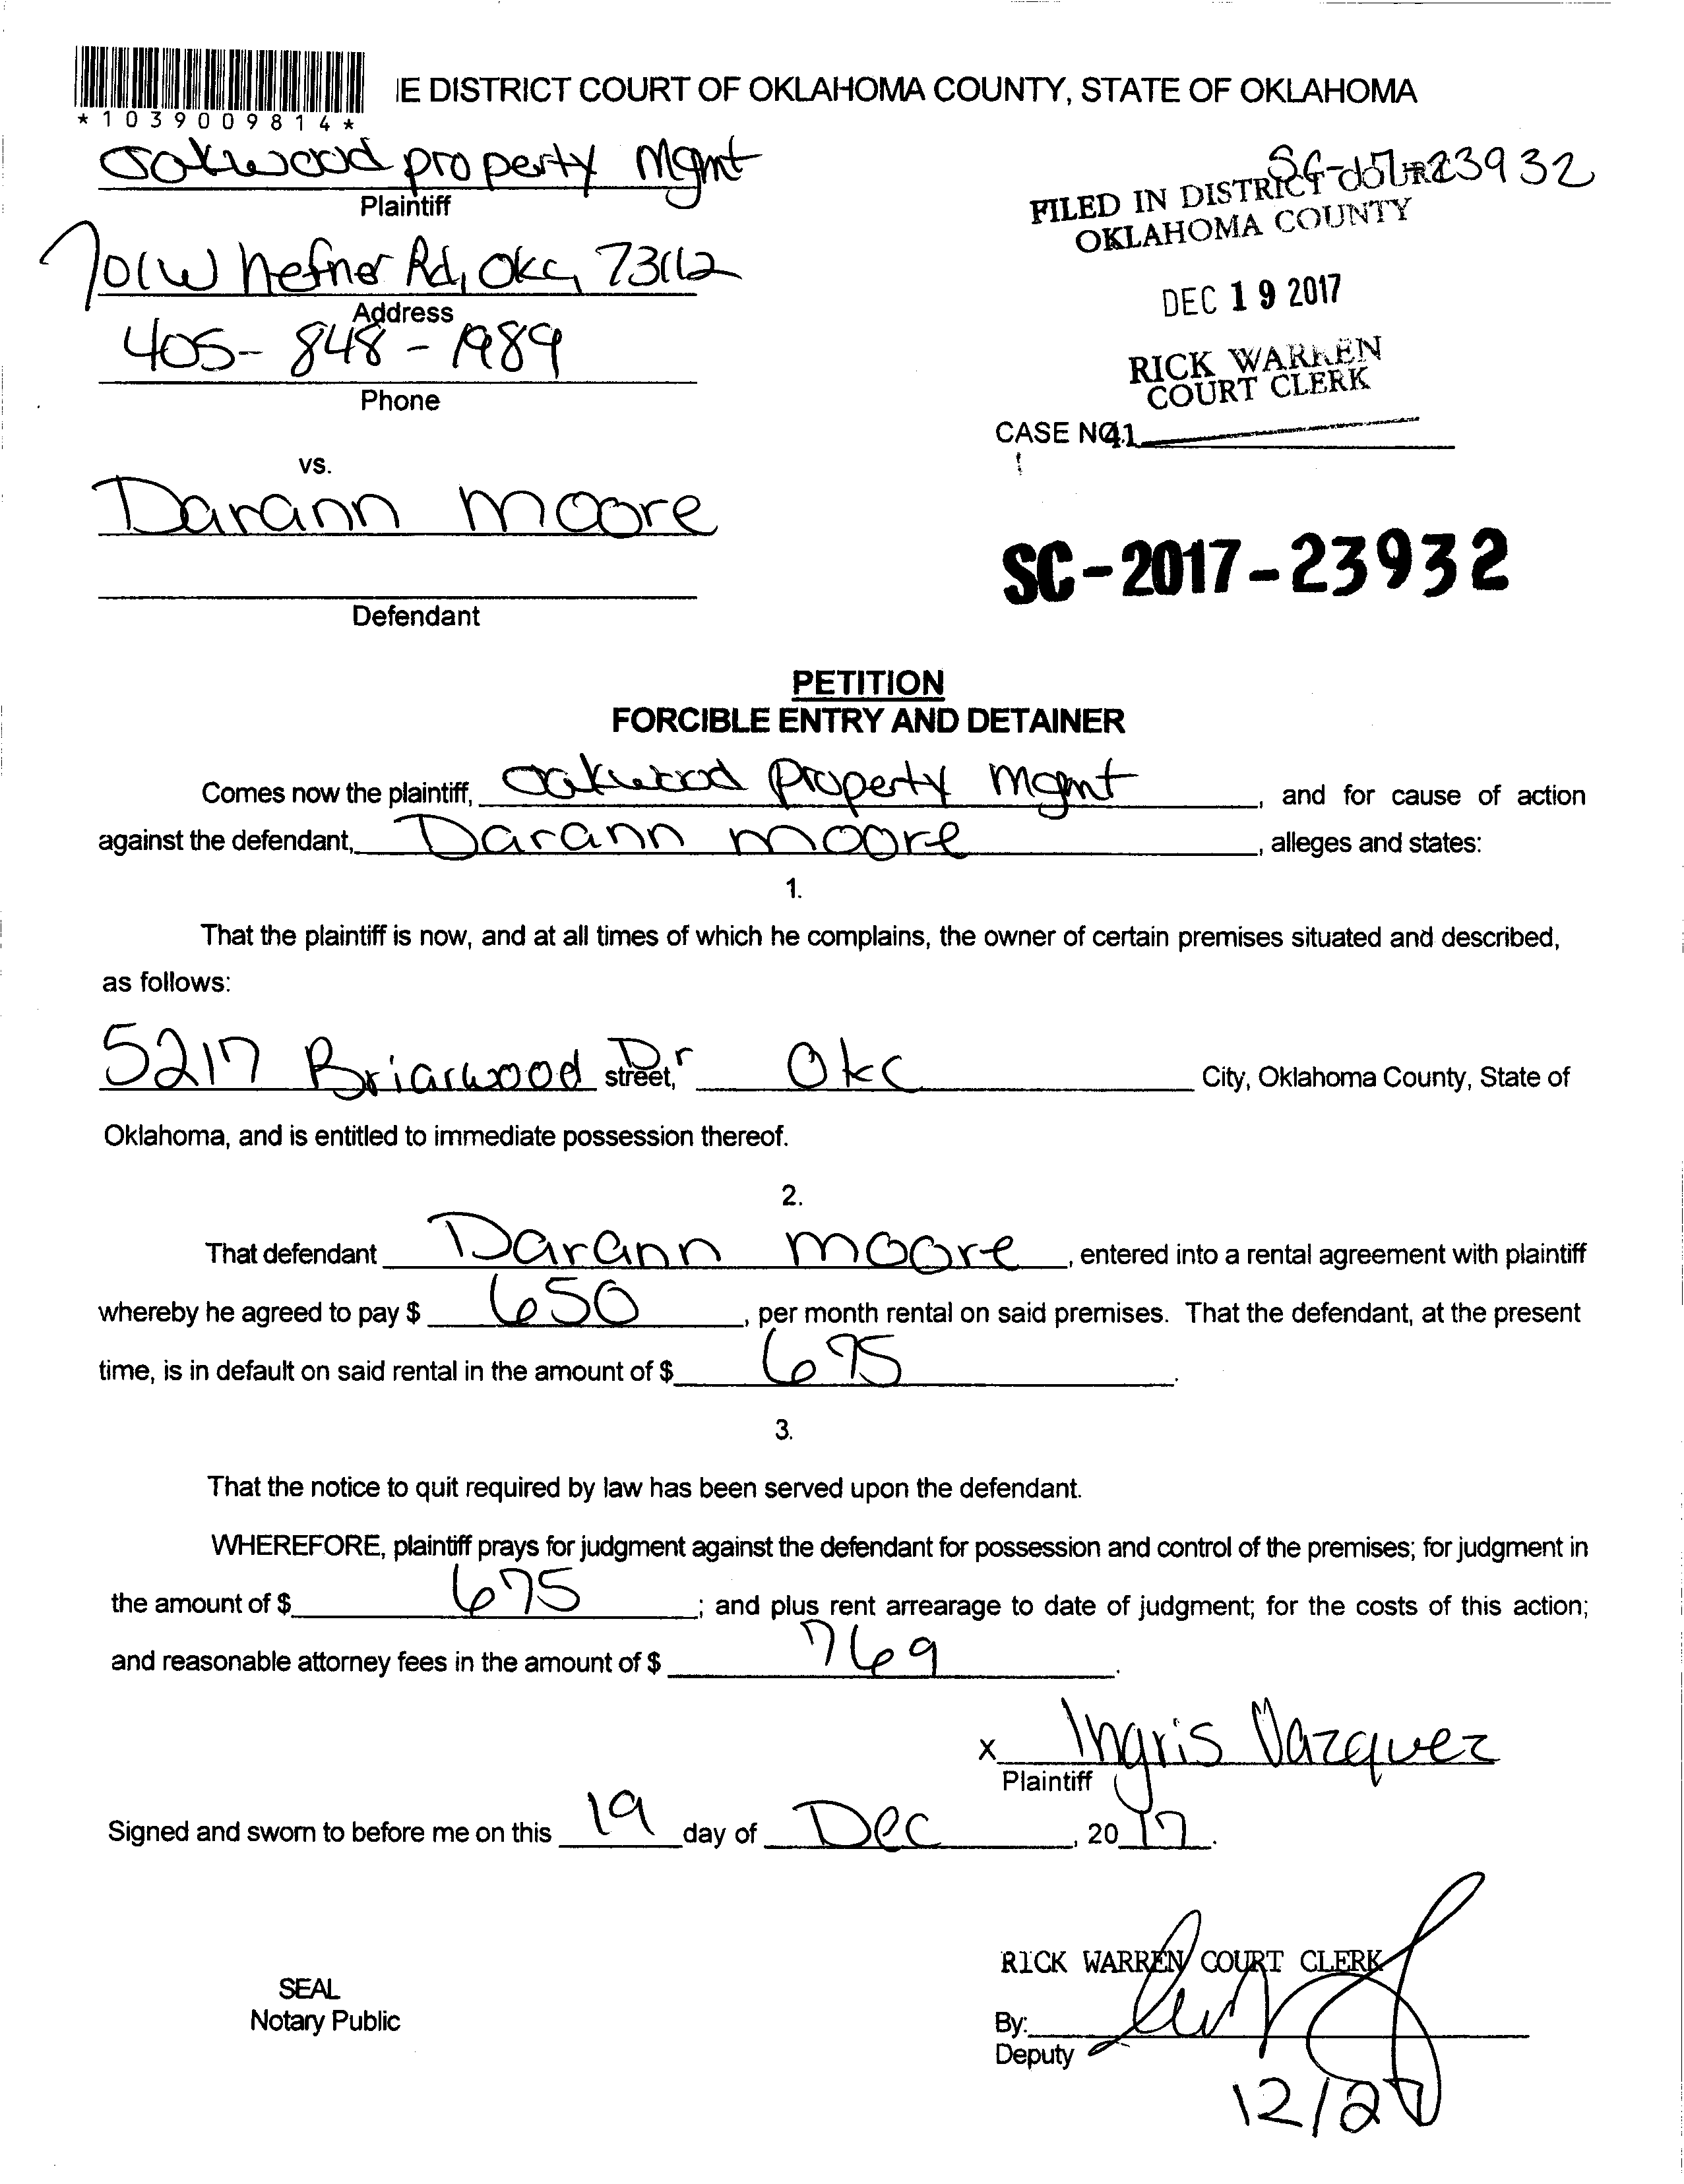 IE DISTRICT COURT OF OKLAHOMA COUNTY, STATE OF OKLAHOMA
*1039009814*
Oakwood property Mgmt
Plaintiff
701 W hefner Rd, Okc, 73112
Address
405-848-1989
Phone
vs.
Darann moore
Defendant
23932
FILED IN DISTRICT
OKLAHOMA COUNTY
DEC 19 2017
RICK WARREN
COURT CLERK
CASE NO.
41
SC-2017-23932
PETITION
FORCIBLE ENTRY AND DETAINER
Comes now the plaintiff, Oakwood property mgmt, and for cause of action
against the defendant, Darann moore, alleges and states:
1.
That the plaintiff is now, and at all times of which he complains, the owner of certain premises situated and described,
as follows:
5217 Briarwood Dr street, Okc City, Oklahoma County, State of
Oklahoma, and is entitled to immediate possession thereof.
2.
That defendant Darann moore, entered into a rental agreement with plaintiff
whereby he agreed to pay $ 650, per month rental on said premises. That the defendant, at the present
time, is in default on said rental in the amount of $ 675.
3.
That the notice to quit required by law has been served upon the defendant.
WHEREFORE, plaintiff prays for judgment against the defendant for possession and control of the premises; for judgment in
the amount of $ 675; and plus rent arrearage to date of judgment; for the costs of this action;
and reasonable attorney fees in the amount of $ 769.
x Ingris Vazquez
Plaintiff
Signed and sworn to before me on this 19 day of Dec, 20 17.
RICK WARREN COURT CLERK
SEAL
Notary Public
By:
Deputy